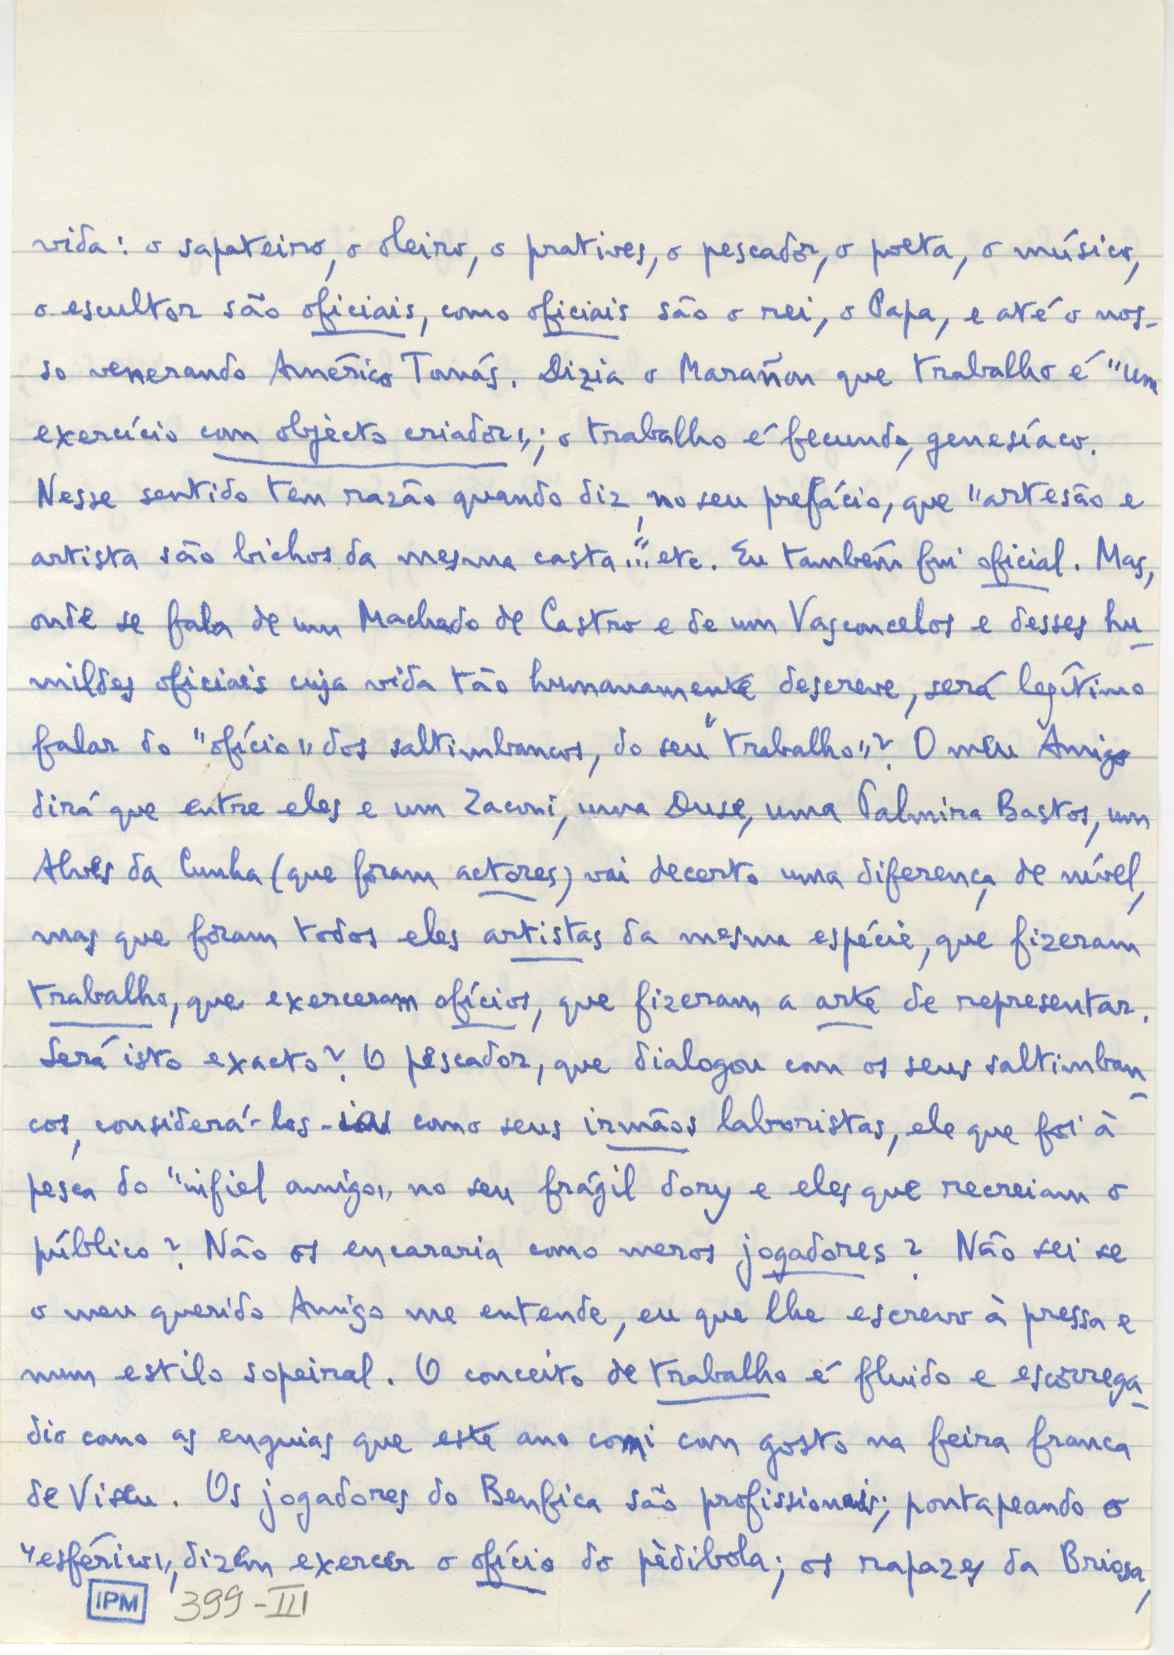 vida: o sapateiro, o oleiro, o pratives, o pescador, o poeta, o músico,
o escultor são oficiais, como oficiais são o rei, o Papa, e até o nos-
so venerando Américo Tomás. Dizia o Marañon que trabalho é "um
exercício com objècto criador"; o trabalho é fecundo, genesíaco.
Nesse sentido tem razão quando diz, no seu prefácio, que "artesão e
artista são bichos da mesma casta..." etc. Eu também fui oficial. Mas,
onde se fala de um Machado de Castro e de um Vasconcelos e desses hu-
mildes oficiais cuja vida tão humanamente descreve, será legítimo
falar do "ofício" dos saltimbancos, do seu "trabalho"? O meu Amigo
dirá que entre eles e um Zaconi, uma Duse, uma Palmira Bastos, um
Alves da Cunha (que foram actores) vai decerto uma diferença de nível,
mas que foram todos eles artistas da mesma espécie, que fizeram
trabalho, que exerceram ofícios, que fizeram a arte de representar.
Será isto exacto? O pescador, que dialogou com os seus saltimban-
cos, considerá-los-ia como seus irmãos laboristas, ele que foi à
pesca do "infiel amigo" no seu frágil dory e eles que recreiam o
público? Não os encararia como meros jogadores? Não sei se
o meu querido Amigo me entende, eu que lhe escrevo à pressa e
num estilo sopeiral. O conceito de trabalho é fluido e escorrega-
dio como as enguias que este ano comi com gosto na feira franca
de Viseu. Os jogadores do Benfica são profissionais; pontapeando o
"esférico", dizem exercer o ofício do pèdibola; os rapazes da Briosa,
IPM 399-III